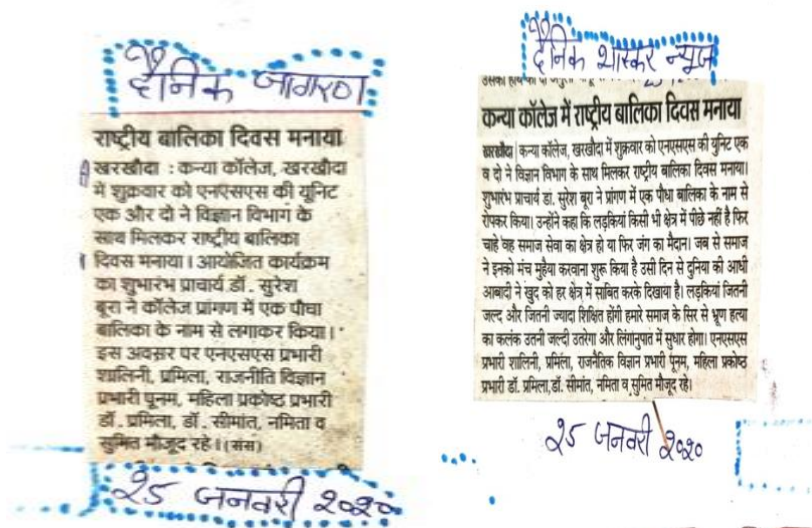 दैनिक जागरण
राष्ट्रीय बालिका दिवस मनाया
खरखौदा : कन्या कॉलेज, खरखौदा
में शुक्रवार को एनएसएस की यूनिट
एक और दो ने विज्ञान विभाग के
साथ मिलकर राष्ट्रीय बालिका
दिवस मनाया। आयोजित कार्यक्रम
का शुभारंभ प्राचार्य डॉ. सुरेश
बूरा ने कॉलेज प्रांगण में एक पौधा
बालिका के नाम से लगाकर किया।
इस अवसर पर एनएसएस प्रभारी
शालिनी, प्रमिला, राजनीति विज्ञान
प्रभारी पूनम, महिला प्रकोष्ठ प्रभारी
डॉ. प्रमिला, डॉ. सीमांत, नमिता व
सुमित मौजूद रहे। (संस)
२५ जनवरी २०२०
दैनिक भास्कर न्यूज
कन्या कॉलेज में राष्ट्रीय बालिका दिवस मनाया
खरखौदा| कन्या कॉलेज, खरखौदा में शुक्रवार को एनएसएस की युनिट एक
व दो ने विज्ञान विभाग के साथ मिलकर राष्ट्रीय बालिका दिवस मनाया।
शुभारंभ प्राचार्य डा. सुरेश बूरा ने प्रांगण में एक पौधा बालिका के नाम से
रोपकर किया। उन्होंने कहा कि लड़कियां किसी भी क्षेत्र में पीछे नहीं है फिर
चाहे वह समाज सेवा का क्षेत्र हो या फिर जंग का मैदान। जब से समाज
ने इनको मंच मुहैया करवाना शुरू किया है उसी दिन से दुनिया की आधी
आबादी ने खुद को हर क्षेत्र में साबित करके दिखाया है। लड़कियां जितनी
जल्द और जितनी ज्यादा शिक्षित होंगी हमारे समाज के सिर से भ्रूण हत्या
का कलंक उतनी जल्दी उतरेगा और लिंगानुपात में सुधार होगा। एनएसएस
प्रभारी शालिनी, प्रमिला, राजनैतिक विज्ञान प्रभारी पूनम, महिला प्रकोष्ठ
प्रभारी डॉ. प्रमिला,डॉ. सीमांत, नमिता व सुमित मौजूद रहे।
२५ जनवरी २०२०